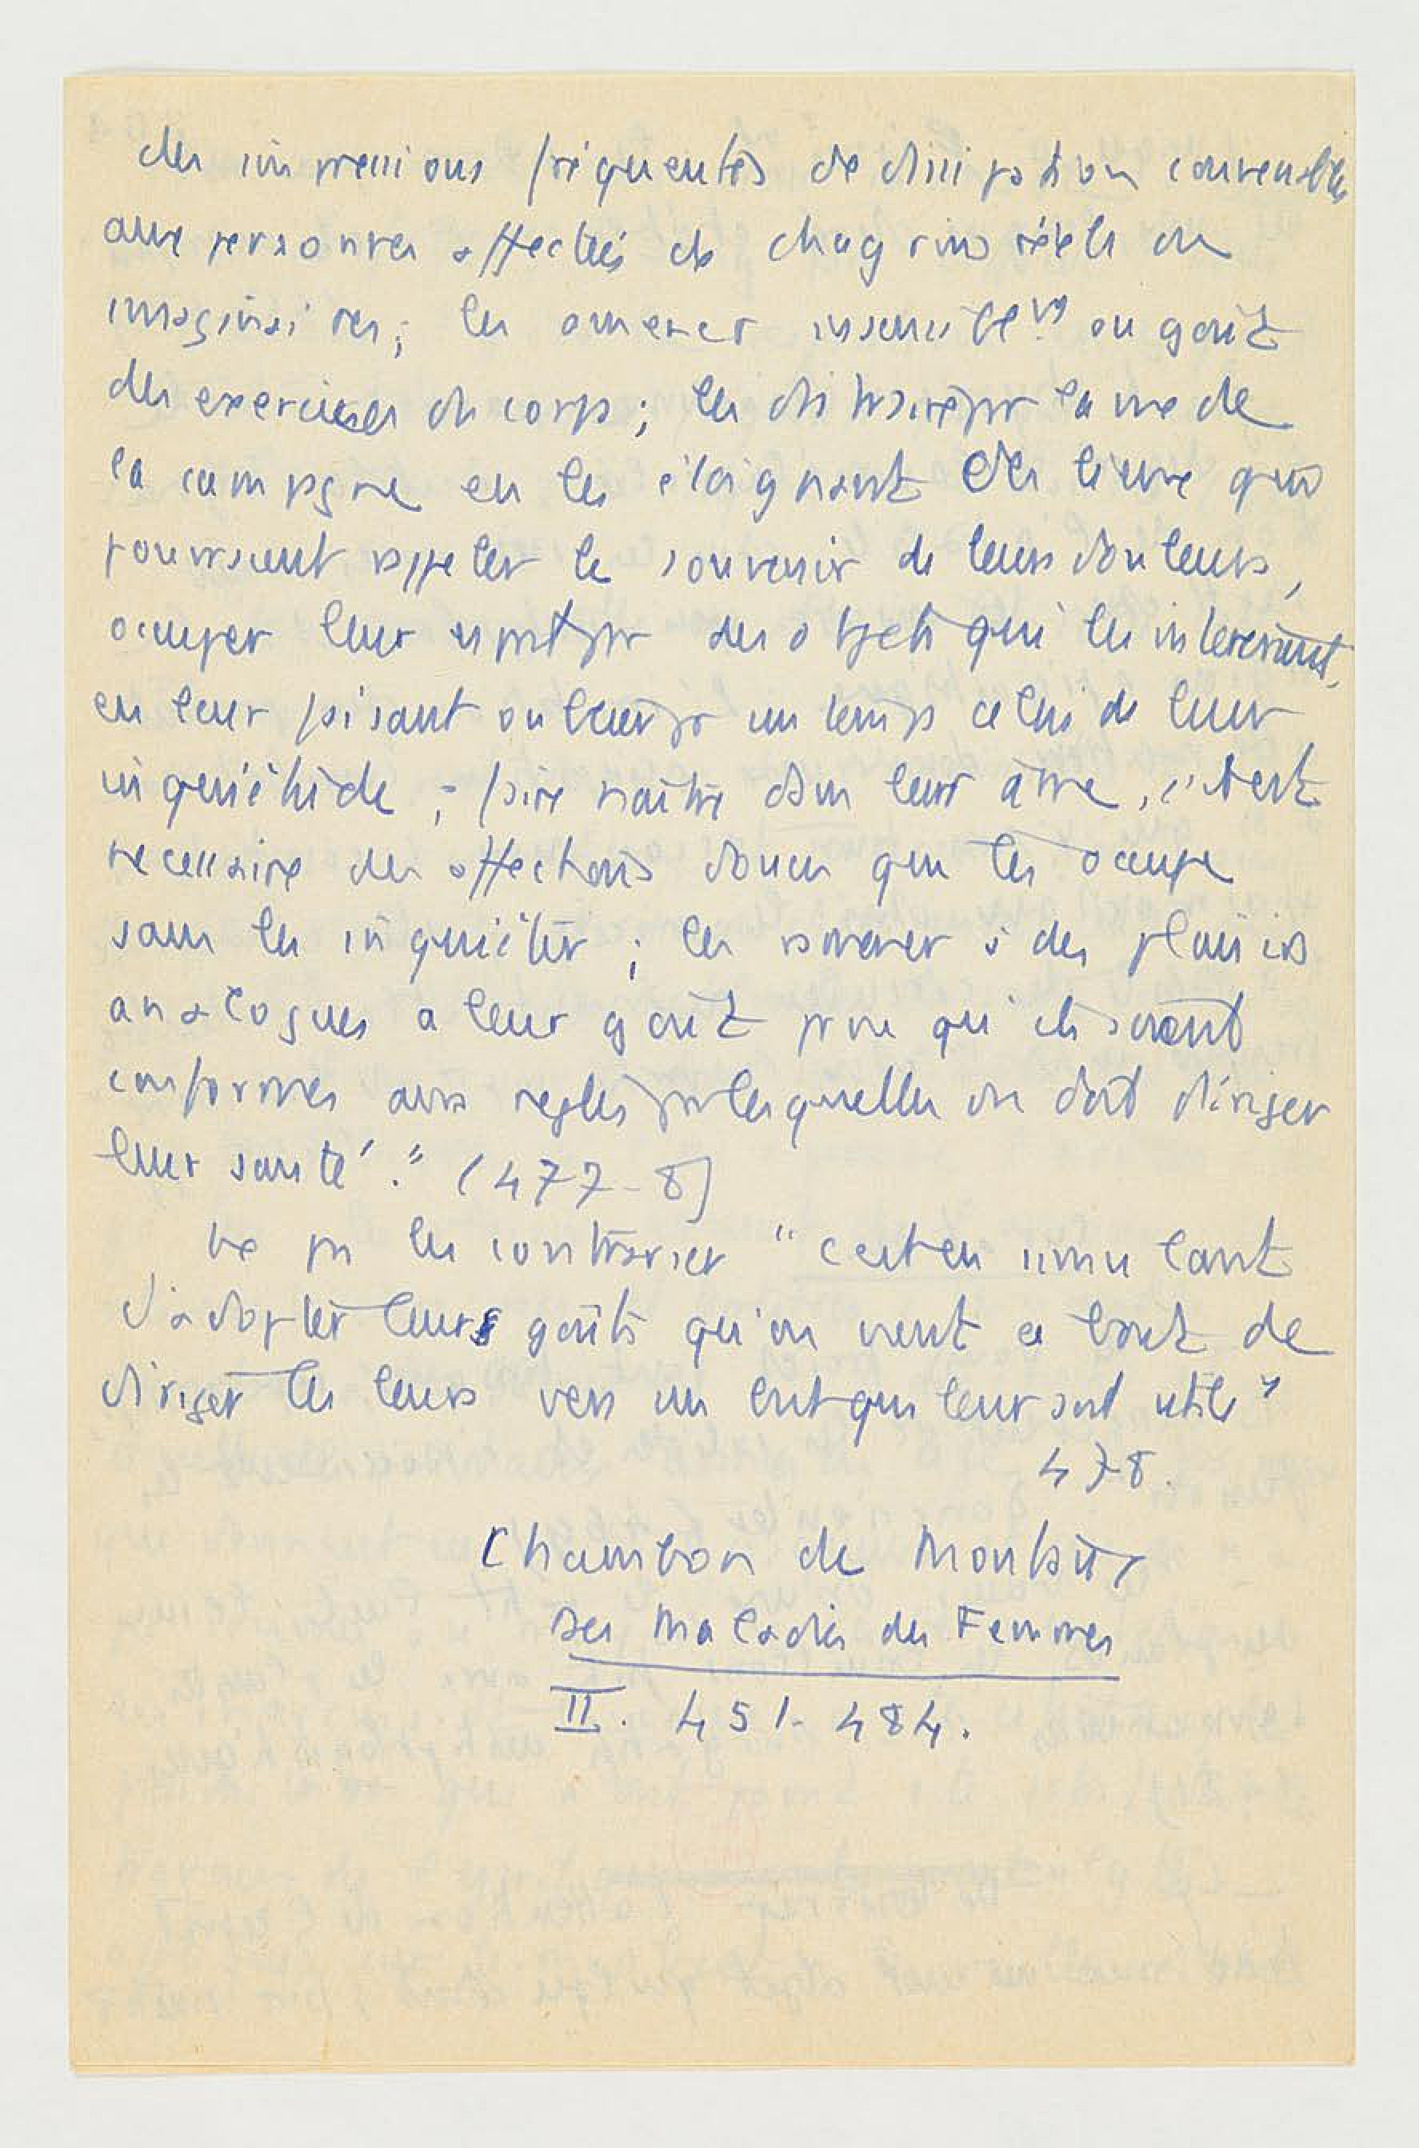 des impressions fréquentes de dissipation convenables
aux personnes affectées de chagrins réels ou
imaginaires; les amener insensiblemt au goût
des exercices du corps; les distraire par la vue de
la campagne en les éloignant des lieux qui
pourraient rappeler le souvenir de leurs douleurs,
occuper leur esprit par des objets qui les intéressent,
en leur faisant oublier pr un temps celui de leur
inquiétude; faire naître dans leur âme, s'il est
nécessaire des affections douces qui les occupe
sans les inquiéter; les ramener à des plaisirs
analogues a leur goût pourvu qu'ils soient
conformes aux regles par lesquelles on doit diriger
leur santé." (477-8)
Ne pas les contrarier "c'est en simulant
d'adopter leurs goûts qu'on vient a bout de
diriger les leurs vers un but qui leur soit utile"
478.
Chambon de Montaux
Des Maladies des Femmes
II. 451-484.